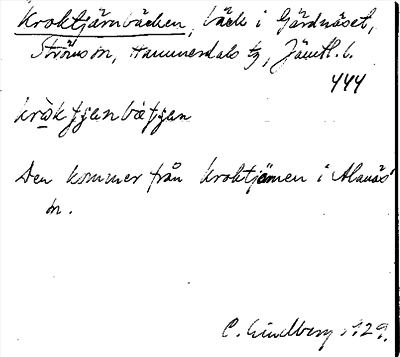 Kroktjärnbäcken, bäck i Gärdnäset,
Ströms sn, Hammerdals tg, Jämtl. l.
444
Den kommer från Kroktjärnen i Alanäs
sn.
C. Lindberg 1929.